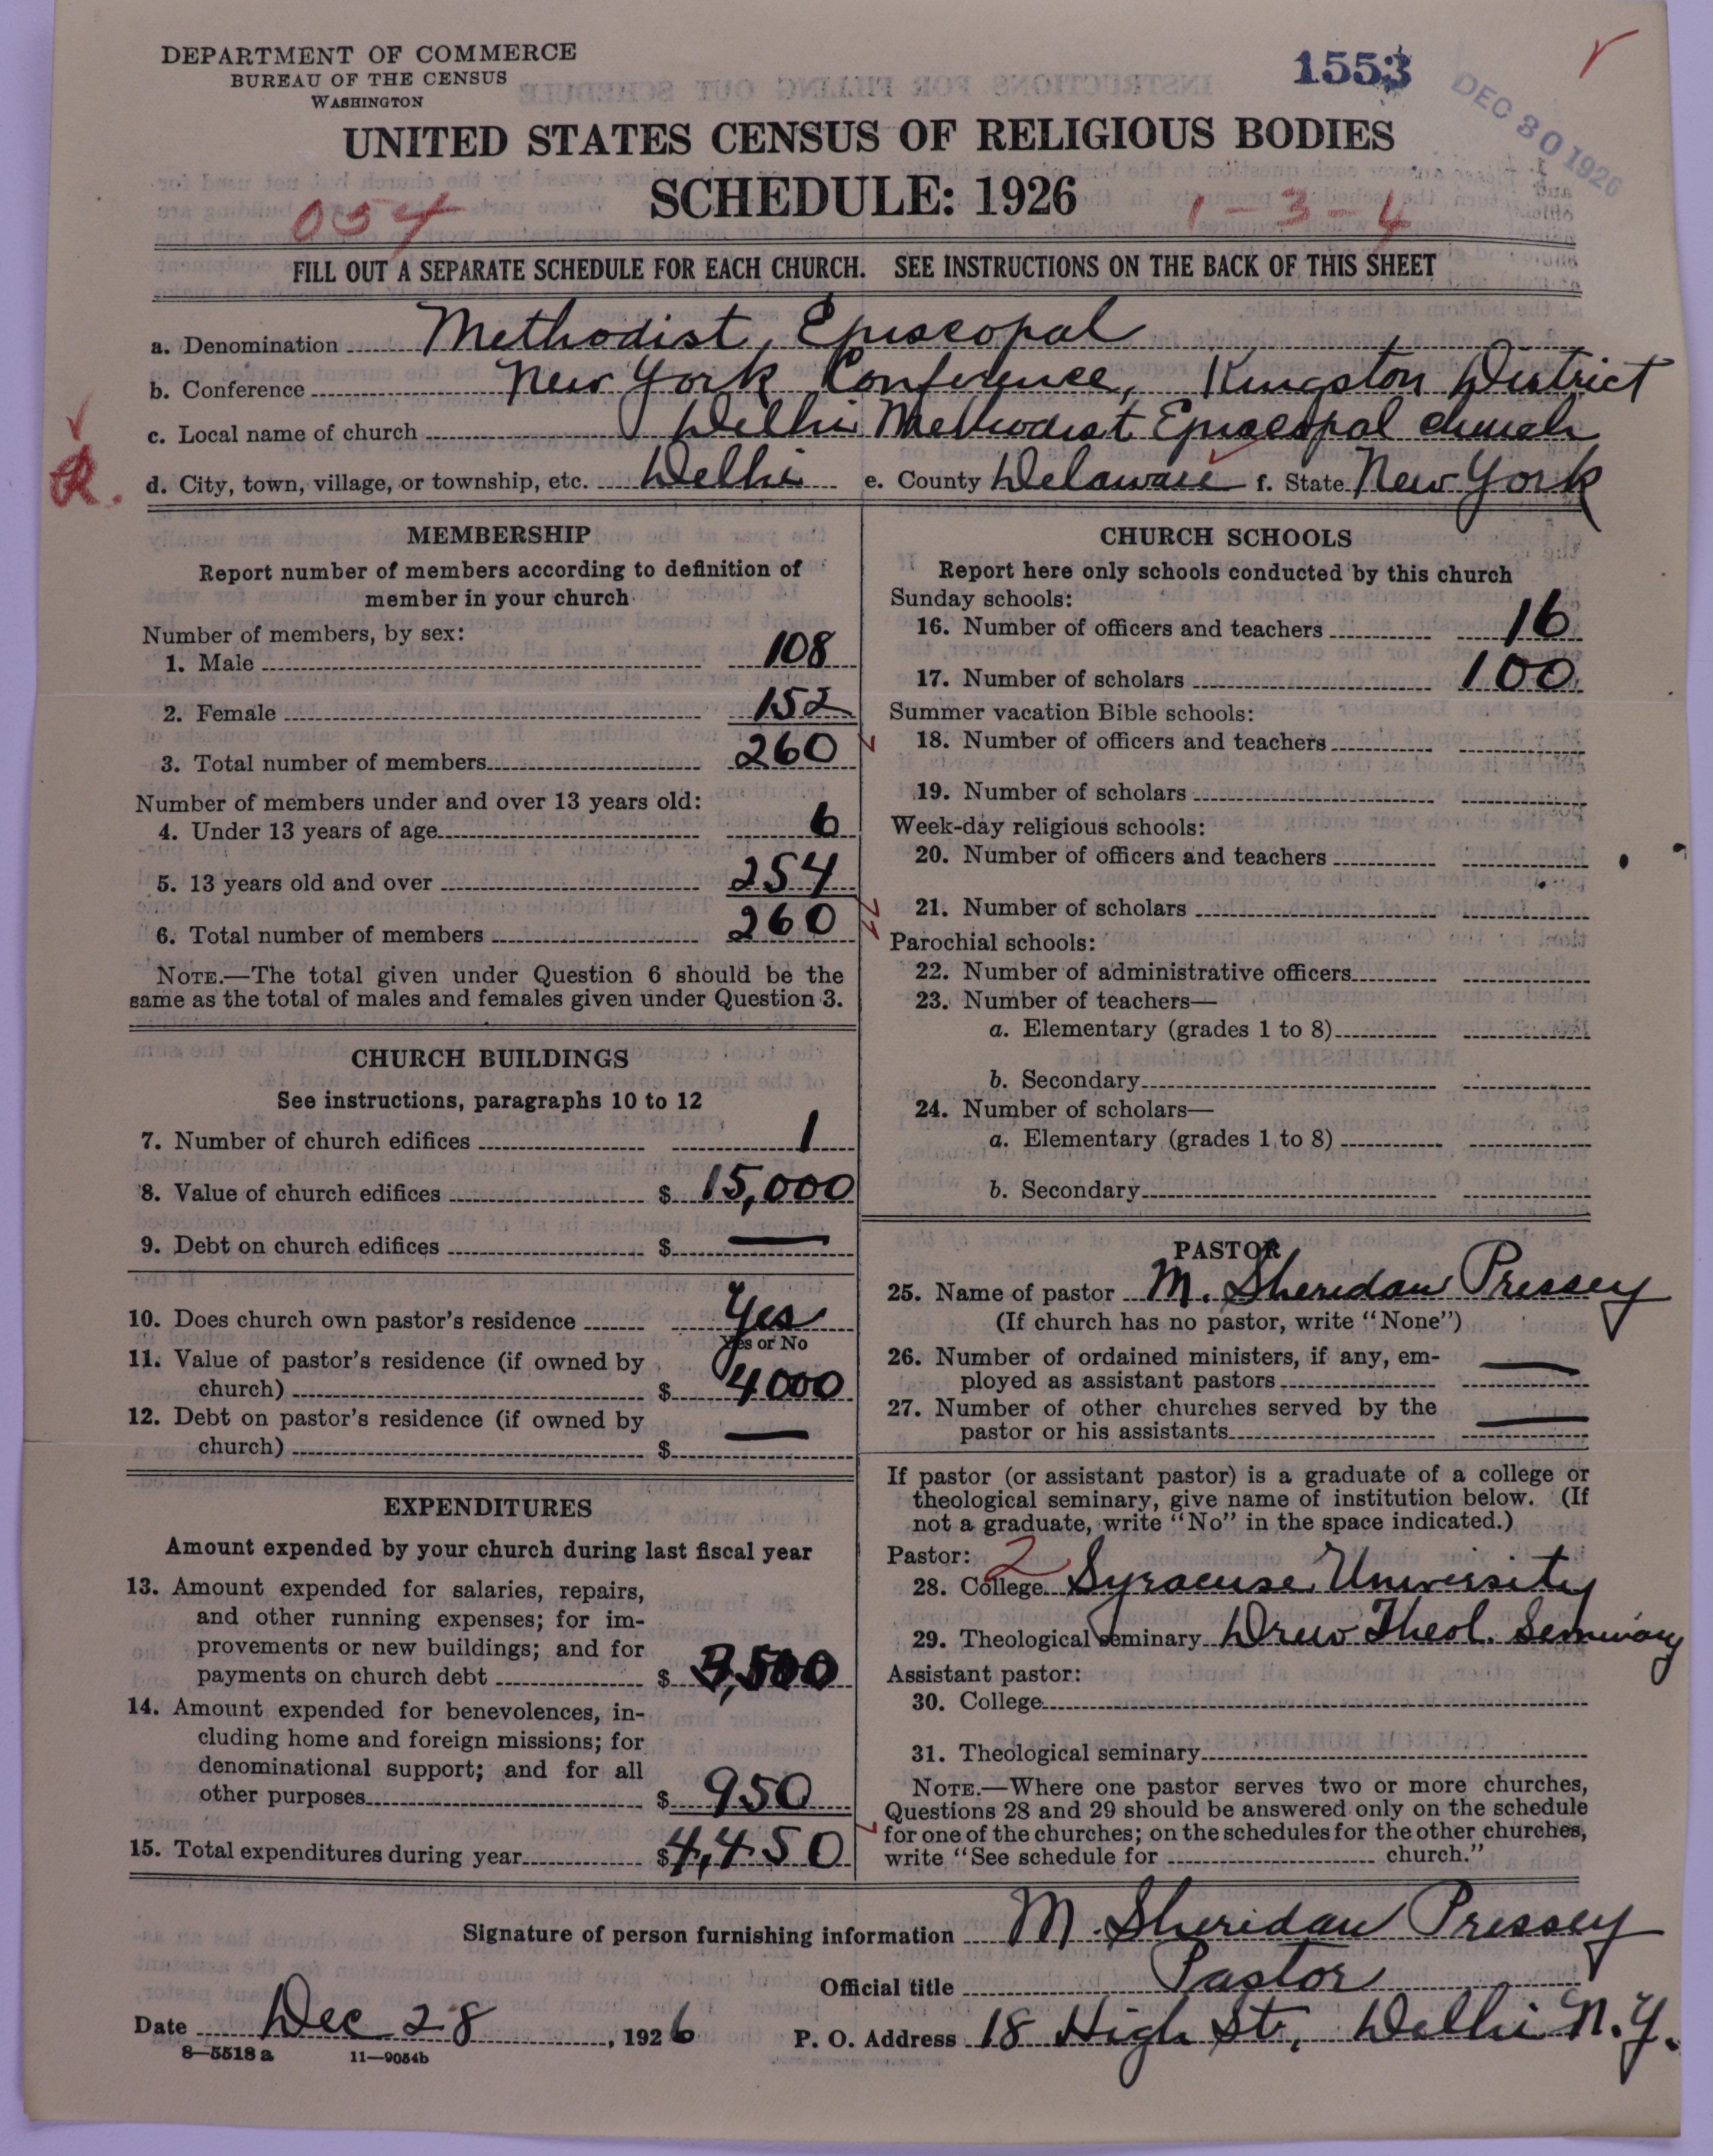 DEPARTMENT OF COMMERCE
BUREAU OF THE CENSUS
WASHINGTON
1553
DEC 30 1926
UNITED STATES CENSUS OF RELIGIOUS BODIES
SCHEDULE: 1926
054
1-3-4
FILL OUT A SEPARATE SCHEDULE FOR EACH CHURCH. SEE INSTRUCTIONS ON THE BACK OF THIS SHEET
a. Denomination Methodist Episcopal
b. Conference New York Conference, Kingston District
c. Local name of church Delhi Methodist Episcopal church
R.
d. City, town, village, or township, etc. Delhi e. County Delaware f. State New York
MEMBERSHIP
Report number of members according to definition of
member in your church
Number of members, by sex:
1. Male 108
2. Female 152
3. Total number of members 260
Number of members under and over 13 years old:
4. Under 13 years of age 6
5. 13 years old and over 254
6. Total number of members 260
NOTE.—The total given under Question 6 should be the
same as the total of males and females given under Question 3.
CHURCH BUILDINGS
See instructions, paragraphs 10 to 12
7. Number of church edifices 1
8. Value of church edifices $ 15,000
9. Debt on church edifices $ —
10. Does church own pastor's residence Yes
Yes or No
11. Value of pastor's residence (if owned by
church) $ 4000
12. Debt on pastor's residence (if owned by
church) $ —
EXPENDITURES
Amount expended by your church during last fiscal year
13. Amount expended for salaries, repairs,
and other running expenses; for im-
provements or new buildings; and for
payments on church debt $ 3,500
14. Amount expended for benevolences, in-
cluding home and foreign missions; for
denominational support; and for all
other purposes $ 950
15. Total expenditures during year $ 4,450
CHURCH SCHOOLS
Report here only schools conducted by this church
Sunday schools:
16. Number of officers and teachers 16
17. Number of scholars 100
Summer vacation Bible schools:
18. Number of officers and teachers
19. Number of scholars
Week-day religious schools:
20. Number of officers and teachers
21. Number of scholars
Parochial schools:
22. Number of administrative officers
23. Number of teachers—
a. Elementary (grades 1 to 8)
b. Secondary
24. Number of scholars—
a. Elementary (grades 1 to 8)
b. Secondary
PASTOR
25. Name of pastor M. Sheridan Pressey
(If church has no pastor, write "None")
26. Number of ordained ministers, if any, em-
ployed as assistant pastors —
27. Number of other churches served by the
pastor or his assistants —
If pastor (or assistant pastor) is a graduate of a college or
theological seminary, give name of institution below. (If
not a graduate, write "No" in the space indicated.)
Pastor: 2
28. College Syracuse University
29. Theological seminary Drew Theol. Seminary
Assistant pastor:
30. College
31. Theological seminary
NOTE.—Where one pastor serves two or more churches,
Questions 28 and 29 should be answered only on the schedule
for one of the churches; on the schedules for the other churches,
write "See schedule for church."
Signature of person furnishing information M. Sheridan Pressey
Official title Pastor
Date Dec 28, 1926 P. O. Address 18 High St., Delhi N.Y.
8—5518 a 11—9054b